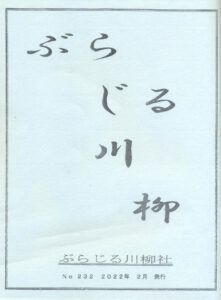 ぶらじる川柳
ぶらじる川柳社
No 232 2022年 2月 発行